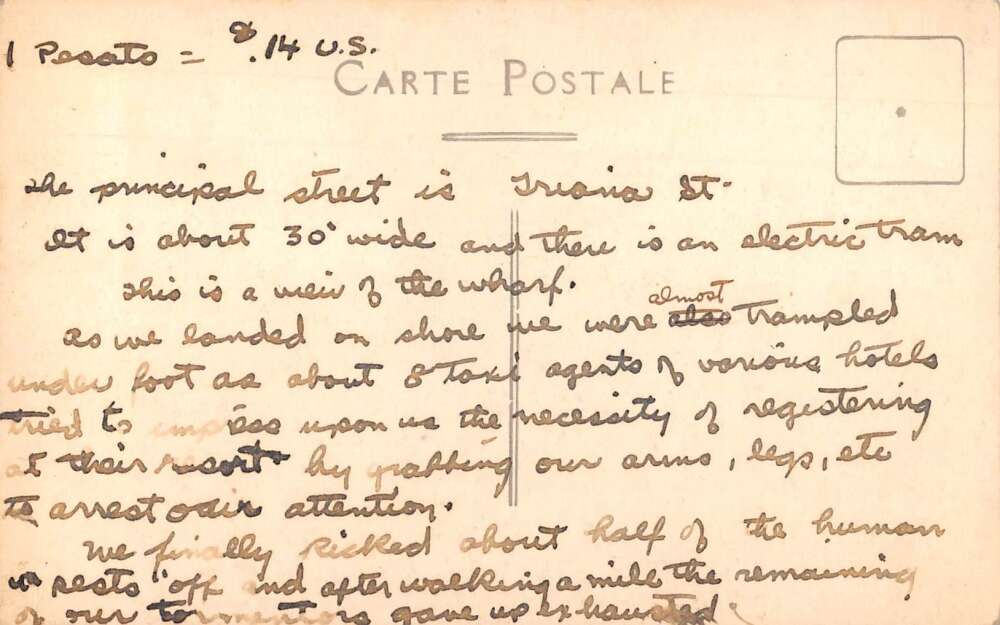 1 Pesato = $.14 U.S.
CARTE POSTALE
The principal street is Triana St.
It is about 30' wide and there is an electric tram
This is a veiw of the wharf.
As we landed on shore we were almost trampled
under foot as about 8 taxi agents of various hotels
tried to impress upon us the necessity of registering
at their resorts by grabbing our arms, legs, etc
to arrest our attention.
We finally kicked about half of the human
rests "off and after walking a mile the remaining
of our tormentors gave up exhausted